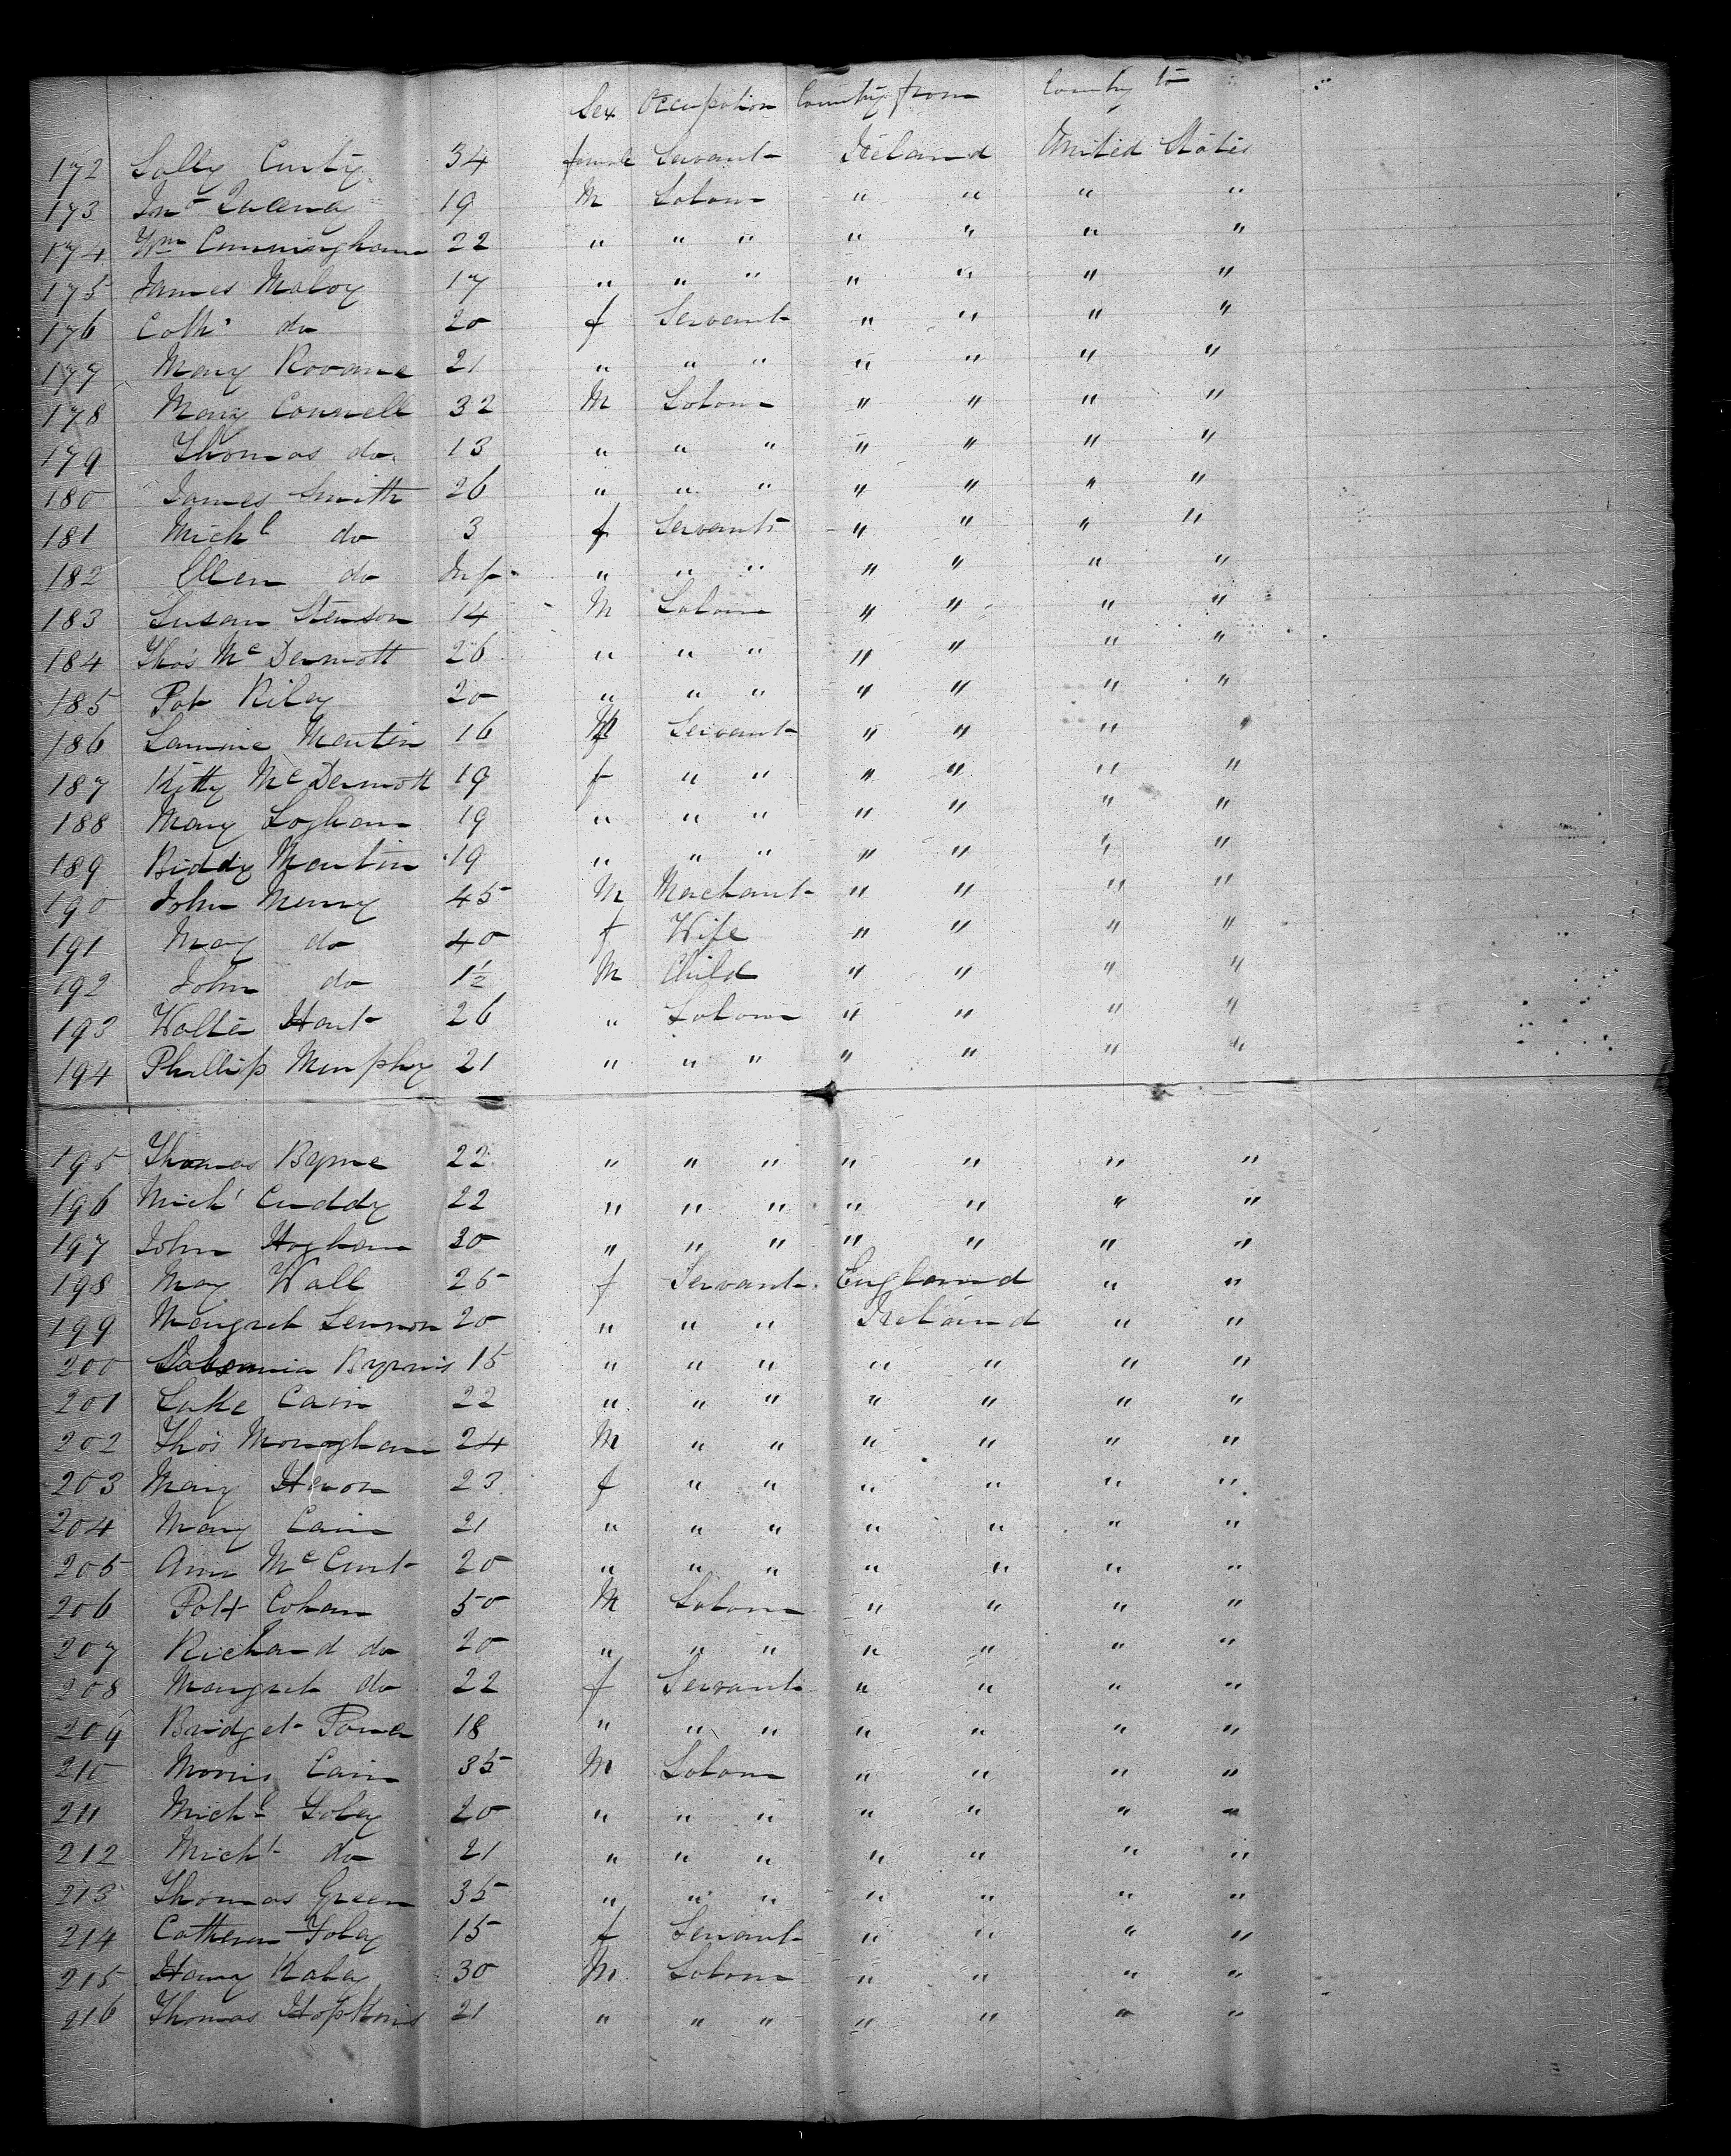 Sex Occupation Country from Country to
172 Sally Curty 34 female Servant Ireland United States
173 Jno 19 M Labour " " " "
174 Wm Cunningham 22 " " " " " " "
175 James Maloy 17 " " " " " " "
176 Cath. do 20 f Servant " " " "
177 Mary Rovane 21 " " " " " " "
178 Mary Connell 32 M Labour " " " "
179 Thomas do. 13 " " " " " " "
180 James Smith 26 " " " " " " "
181 Michl do 3 f Servant " " " "
182 Ellen do Inf. " " " " " " "
183 Susan Stenson 14 M Labour " " " "
184 Thos McDermott 26 " " " " " " "
185 Pat Riley 20 " " " " " " "
186 Martin 16 Servant " " " "
187 Kitty McDermott 19 f " " " " " "
188 Mary Logham 19 " " " " " " "
189 Biddy Martin 19 " " " " " " "
190 John Murry 45 M Marchant " " " "
191 Mary do 40 f Wife " " " "
192 John do 1½ M Child " " " "
193 Walter Hart 26 " Labour " " " "
194 Phillip Murphy 21 " " " " " " "
195 Thomas Byrne 22 " " " " " " "
196 Michl Cuddy 22 " " " " " " "
197 John Hogham 30 " " " " " " "
198 May Wall 25 f Servant England " "
199 Margret Lennon 20 " " " Ireland " "
200 15 " " " " " " "
201 Luke Cain 22 " " " " " " "
202 Thos Monogham 24 M " " " " " "
203 Mary Heron 23 f " " " " " "
204 Mary Cain 21 " " " " " " "
205 Ann McCurt 20 " " " " " " "
206 Patt Cohan 50 M Labour " " " "
207 Richard do 20 " " " " " " "
208 Margret do 22 f Servant " " " "
209 Bridget Power 18 " " " " " " "
210 Morris Cain 35 M Labour " " " "
211 Michl Foley 20 " " " " " " "
212 Michl do 21 " " " " " " "
213 Thomas Green 35 " " " " " " "
214 Cathern Foley 15 f Servant " " " "
215 Haley 30 M Labour " " " "
216 Thomas Hopkins 21 " " " " " " "